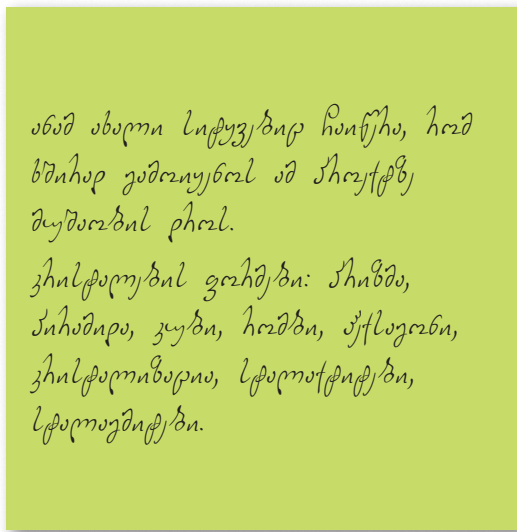 ანამ ახალი სიტყვებიც ჩაიწერა, რომ
ხშირად გამოიყენოს ამ პროექტზე
მუშაობის დროს.
კრისტალების ფორმები: პრიზმა,
პირამიდა, კუბი, რომბი, ჰექსაგონი,
კრისტალიზაცია, სტალაქტიტები,
სტალაგმიტები.